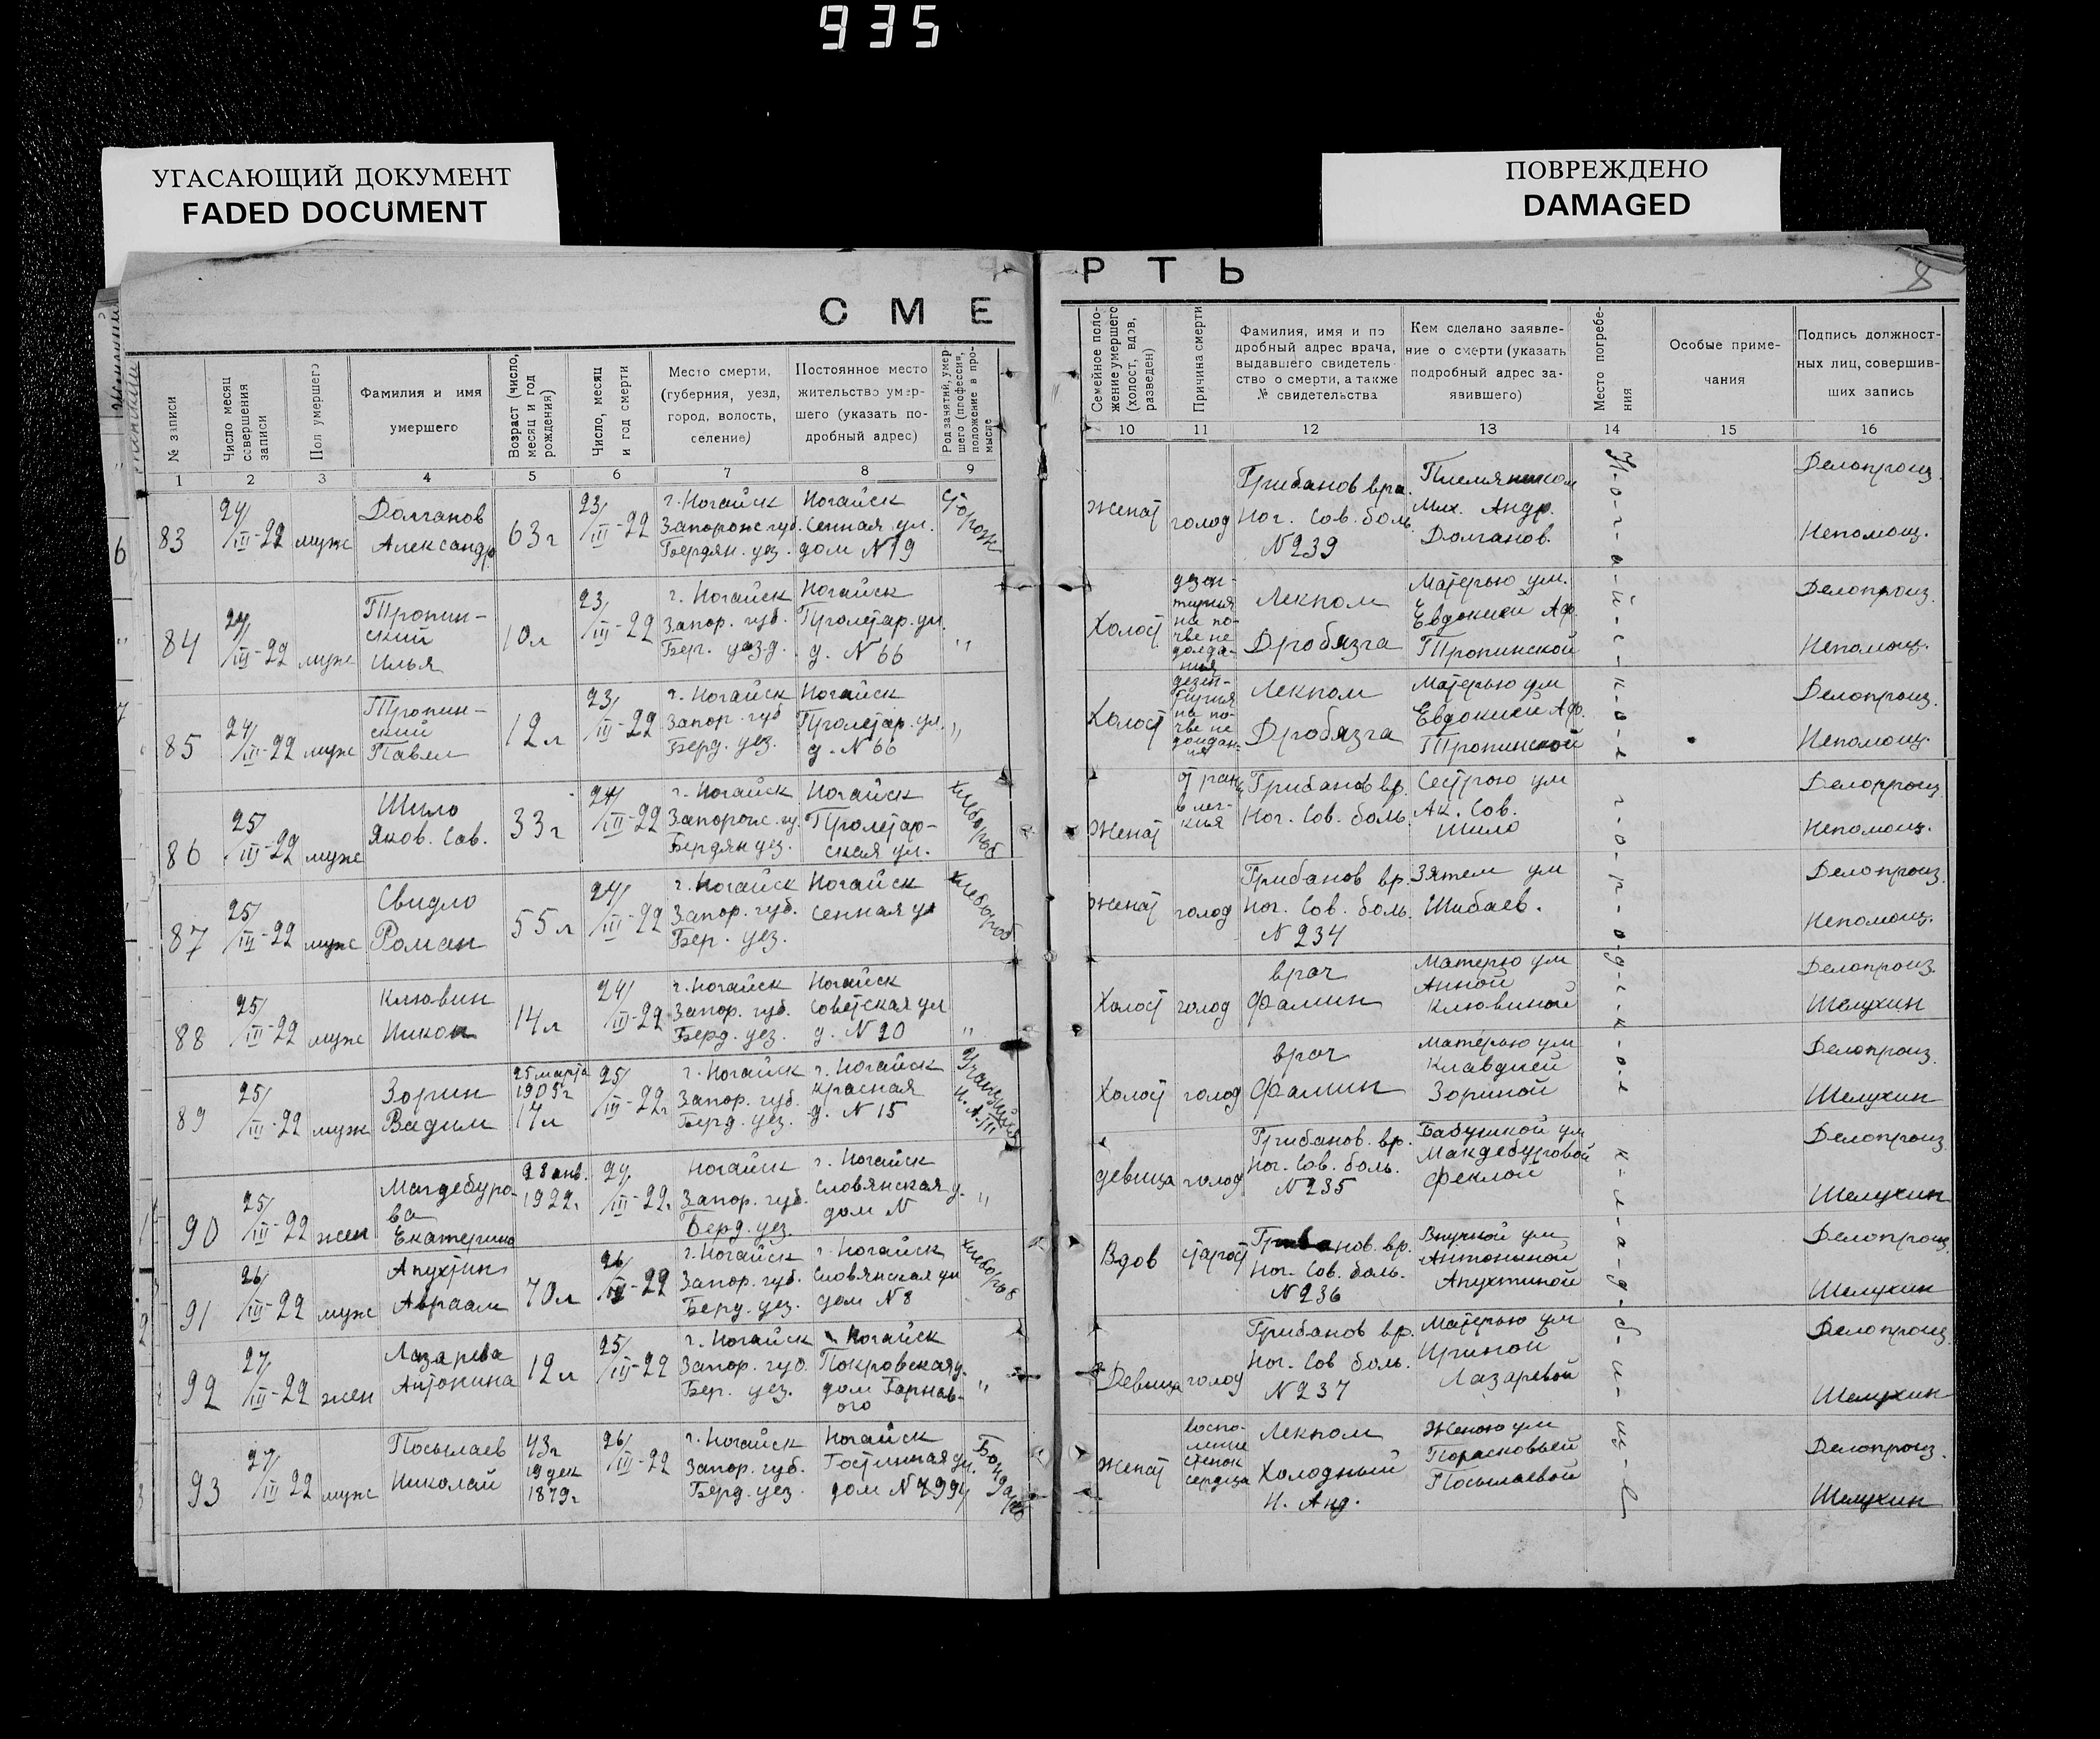 935
УГАСАЮЩИЙ ДОКУМЕНТ
FADED DOCUMENT
ПОВРЕЖДЕНО
DAMAGED
СМЕ
РТЬ
8
№ записи
Число месяц совершения записи
Пол умершего
Фамилия и имя
умершего
Возраст (число, месяц и год рождения)
Число, месяц и год смерти
Место смерти,
(губерния, уезд,
город, волость,
селение)
Постоянное место
жительство умер-
шего (указать по-
дробный адрес)
Род занятий, умер-
шего (профессия,
положение в про-
мысле
Семейное поло-
жение умершего
(холост, вдов,
разведен)
Причина смерти
Фамилия, имя и по
дробный адрес врача,
выдавшего свидетель-
ство о смерти, а также
№ свидетельства
Кем сделано заявле-
ние о смерти (указать
подробный адрес за-
явившего)
Место погребе-
ния
Особые приме-
чания
Подпись должност-
ных лиц, совершив-
ших запись
1 2 3 4 5 6 7 8 9
10 11 12 13 14 15 16
83
24/III-22
муж
Долганов
Александр
63 г
23/III-22
г. Ногайск
Запорожс губ.
Бердян. уез.
Ногайск
Сенная ул.
дом N 19
женат
голод
Грибанов вра.
Ног. Сов. боль.
N 239
Племянником
Мих. Андр.
Долганов.
Делопроиз.
Непомощ.
84
24/III-22
муж
Тропин-
ский
Илья
10 л
23/III-22
г. Ногайск
Запор. губ.
Бер. уезд.
Ногайск
Пролетар. ул.
д. N 66
"
Холост
на по-
чве не
Лекпом
Дробязга
Матерью ум.
Евдокией Аф.
Тропинской
Делопроиз.
Непомощ.
85
24/III-22
муж
Тропин-
ский
Павел
12 л
23/III-22
г. Ногайск
Запор. губ
Берд. уез.
Ногайск
Пролетар. ул.
д. N 66
"
Холост
на по-
чве не
Лекпом
Дробязга
Матерью ум
Евдокией Аф.
Тропинской
Делопроиз.
Непомощ.
86
25/III-22
муж
Шило
Яков. Сав.
33 г
24/III-22
г. Ногайск
Запорожс. гу.
Бердян уез.
Ногайск
Пролетар-
ская ул.
хлебороб
Женат
в лег-
кия
Грибанов вр.
Ног. Сов. боль.
Сестрою ум
Ак. Сов.
Шило
Делопроиз
Непомощ.
87
25/III-22
муж
Свидло
Роман
55 л
24/III-22
г. Ногайск
Запор. губ.
Бер. уез.
Ногайск
Сенная ул
хлебороб
женат
голод
Грибанов вр.
Ног. Сов. боль.
N 234
Зятем ум
Шибаев.
Делопроиз.
Непомощ.
88
25/III-22
муж
Клювин
Никон
14 л
24/III-22
г. Ногайск
Запор. губ.
Берд. уез.
Ногайск
Советская ул
д. N 20
"
Холост
голод
врач
Фамин
Матерю ум
Анной
Клювиной
Делопроиз.
Шелухин
89
25/III-22
муж
Зорин
Вадим
25 марта
1905 г
17 л
25/III-22г
г. Ногайск
Запор. губ.
Берд. уез.
г. Ногайск
Красная
д. N 15
Учащийся
Холост
голод
врач
Фамин
Матерью ум
Клавдией
Зориной
Делопроиз.
Шелухин
90
25/III-22
жен
Магдебуро-
ва
Екатерина
28 янв.
1922 г
24/III-22г.
Ногайск
Запор. губ.
Берд. уез.
г. Ногайск
Словянская у.
дом N
"
девица
голод
Грибанов. вр.
Ног. Сов. боль.
N 235
Бабушкой ум
Макдебурговой
Феклой
Делопроиз
Шелухин
91
26/III-22
муж
Апухтин
Авраам
70 л
26/III-22
г. Ногайск
Запор. губ.
Берд. уез.
г. Ногайск
Словянская ул
дом N 8
хлебороб
Вдов
старост
Грибанов. вр.
Ног. Сов. боль.
N 236
Внучкой ум
Антониной
Апухтиной
Делопроиз
Шелухин
92
27/III-22
жен
Лазарева
Антонина
12 л
25/III-22
г. Ногайск
Запор. губ.
Бер. уез.
Ногайск
Покровская у.
дом
"
Девица
голод
Грибанов вр.
Ног. Сов боль.
N 237
Матерью ум
Ириной
Лазаревой
Делопроиз
Шелухин
93
27/III 22
муж
Посылаев
Николай
43 г
19 дек
1879 г
26/III-22
г. Ногайск
Запор. губ.
Берд. уез.
Ногайск
Гостинная ул.
дом N
Бондарь
женат
воспо-
ление
стенок
сердца
Лекпом
Холодный
И. Анд.
Женою ум
Порасковьей
Посылаевой
Делопроиз.
Шелухин
Н-о-г-а-й-с-к-о-е г-о-р-о-д-с-к-о-е к-л-а-д-б-и-щ-е